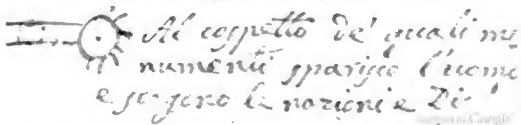 Al cospetto de' quali mo
numenti sparisce l'uomo
e sorgono le nazioni e Di